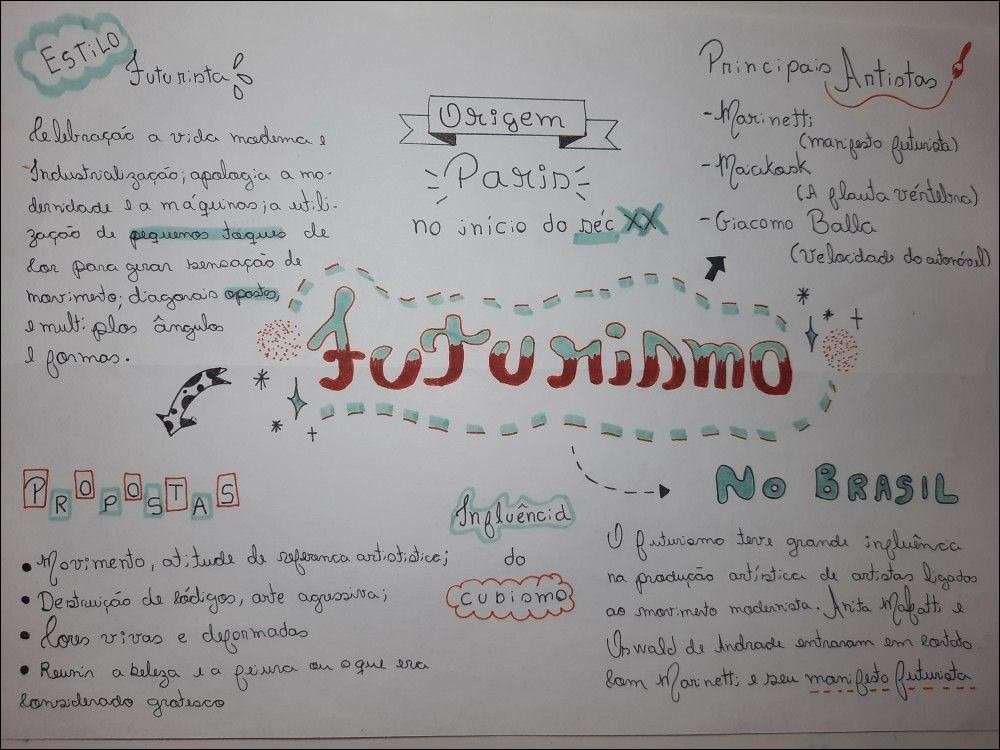 ESTILO
Futurista
Celebração a vida moderna e
Industrialização; apologia a mo-
dernidade e a máquinas; a utili-
zação de pequenos toques de
cor para gerar sensação de
movimento; diagonais opostos,
e multiplos ângulos
e formas.
Origem
Paris
no início do séc XX
Principais Artistas
- Marinetti
(manifesto futurista)
- Maiakosk
(A flauta vértebra)
- Giacomo Balla
(Velocidade do automóvel)
Futurismo
PROPOSTAS
• Movimento, atitude de referenca artististica;
• Destruição de códigos, arte agressiva;
• Cores vivas e deformadas
• Reunir a beleza e a feiura ou o que era
considerado grotesco
Influência
do
cubismo
NO BRASIL
O futurismo teve grande influência
na produção artística de artistas ligados
ao movimento modernista. Anita Mafatti e
Oswald de Andrade entraram em contato
com Marinetti e seu manifesto futurista